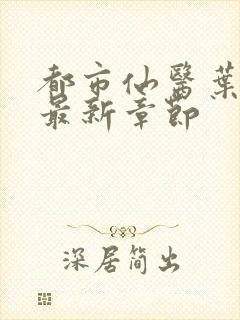 都市仙醫葉
最新章節
深居簡出